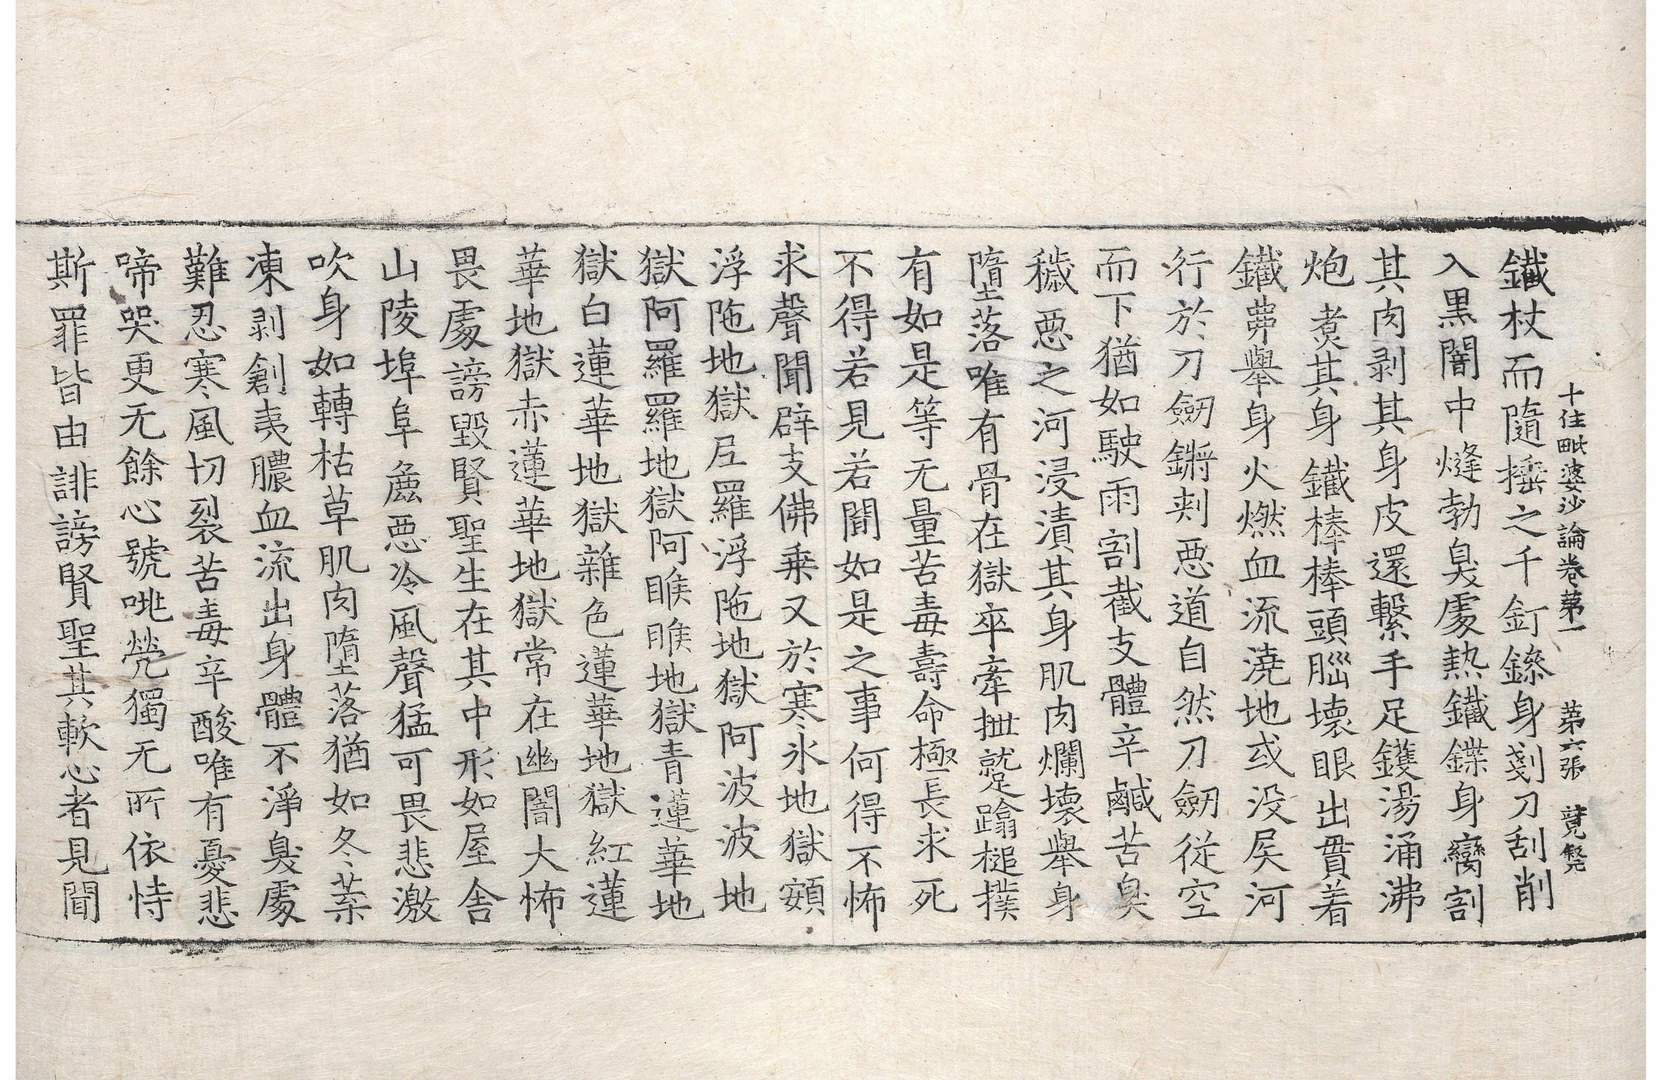 十住毗婆沙論卷第一 第六張 競
鐵杖而隨捶之千釘鏒身剗刀刮削
入黑闇中熢勃臭處熱鐵鍱身臠割
其肉剥其身皮還繫手足鑊湯涌沸
炮煮其身鐵棒棒頭腦壞眼出貫着
鐵丳舉身火燃血流澆地或没屎河
行於刀劒鏘剌惡道自然刀劒從空
而下猶如駛雨割截支體辛鹹苦臭
穢惡之河浸漬其身肌肉爛壞舉身
墮落唯有骨在獄卒牽拽蹴蹋槌撲
有如是等无量苦毒壽命極長求死
不得若見若聞如是之事何得不怖
求聲聞辟支佛乗又於寒氷地獄頞
浮陁地獄尼羅浮陁地獄阿波波地
獄阿羅羅地獄阿睺睺地獄青蓮華地
獄白蓮華地獄雜色蓮華地獄紅蓮
華地獄赤蓮華地獄常在幽闇大怖
畏處謗毀賢聖生在其中形如屋舍
山陵埠阜麁惡冷風聲猛可畏悲激
吹身如轉枯草肌肉墮落猶如冬葉
凍剥創夷膿血流出身體不淨臭處
難忍寒風切裂苦毒辛酸唯有憂悲
啼哭更无餘心號咷煢獨无所依恃
斯罪皆由誹謗賢聖其軟心者見聞